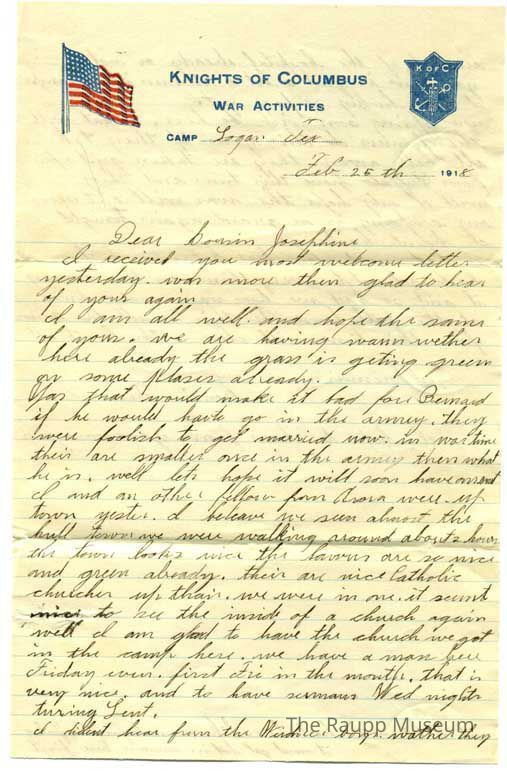 K OF C
KNIGHTS OF COLUMBUS
WAR ACTIVITIES
CAMP Logan Tex
Feb 25th 1918
Dear Cousin Josephine
I received you most welcome letter
yesterday. was more then glad to hear
of your again
I am all well. and hope the same
of yours. we are having warm wether
here already the grass is geting green
on some plases already.
that would make it bad for Bernard
if he would have go in the armey. they
were foolish to get married now. in war time
their are smaller once in the armey then what
he is. well lets hope it will soon have an end
I and an other fellow from were up
town yester. I beleave we seen almost the
hull town we were walking around about 5 hours
the town looks nice the lawns are so nice
and green already. their are nice Catholic
churches up thair. we were in one. it seemt
nice to see the inside of a church again
well I am glad to have the church we got
in the camp here. we have a mass here
Friday even. first Fri in the month. that is
very nice. and to have sermans Wed nights
turing Lent.
I didn't hear from the boys. wather they
The Raupp Museum